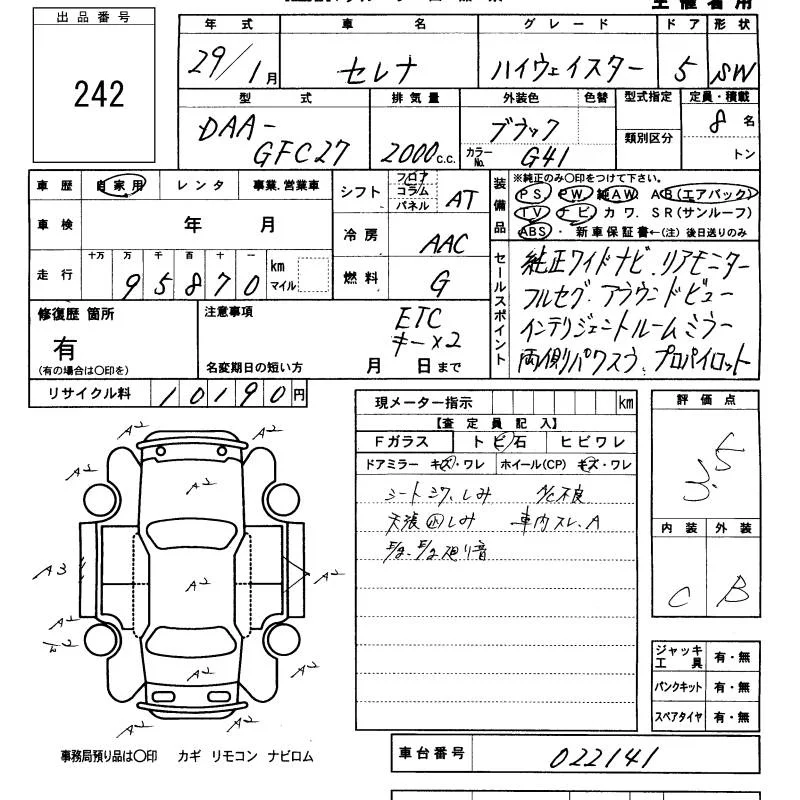 出品番号
242
主催者用
年式 車名 グレード ドア 形状
29/1月 セレナ ハイウェイスター 5 SW
型式 排気量 外装色 色替 型式指定 定員・積載
DAA-GFC27 2000c.c. ブラック 類別区分 8名
カラーNo. G41 トン
車歴 自家用 レンタ 事業.営業車
車検 年 月
走行 十万 万 千 百 十 一
95870 km マイル
シフト フロア コラム パネル AT
冷房 AAC
燃料 G
装備品
※純正のみ〇印をつけて下さい。
PS PW 純AW A B(エアバック)
TV ナビ カワ SR(サンルーフ)
ABS・ 新車保証書←(注) 後日送りのみ
セールスポイント
純正ワイドナビ.リアモニター
フルセグ.アラウンドビュー
インテリジェントルームミラー
両側パワスラ プロパイロット
修復歴 箇所
有
(有の場合は〇印を)
注意事項
ETC
キー×2
名変期日の短い方 月 日まで
リサイクル料 10190円
現メーター指示 km
【査定員記入】
Fガラス トビ石 ヒビワレ
ドアミラー キズ・ワレ ホイール(CP) キズ・ワレ
シートシワ、しみ A/C不良
天張 しみ 車内スレ、A
廻り音
評価点
3.5
内装 外装
C B
ジャッキ工具 有・無
パンクキット 有・無
スペアタイヤ 有・無
A2 A2
A2 A2 A2
A3 A2 A2
A2
A2 A2
A2 A2
事務局預り品は〇印 カギ リモコン ナビロム
車台番号 022141